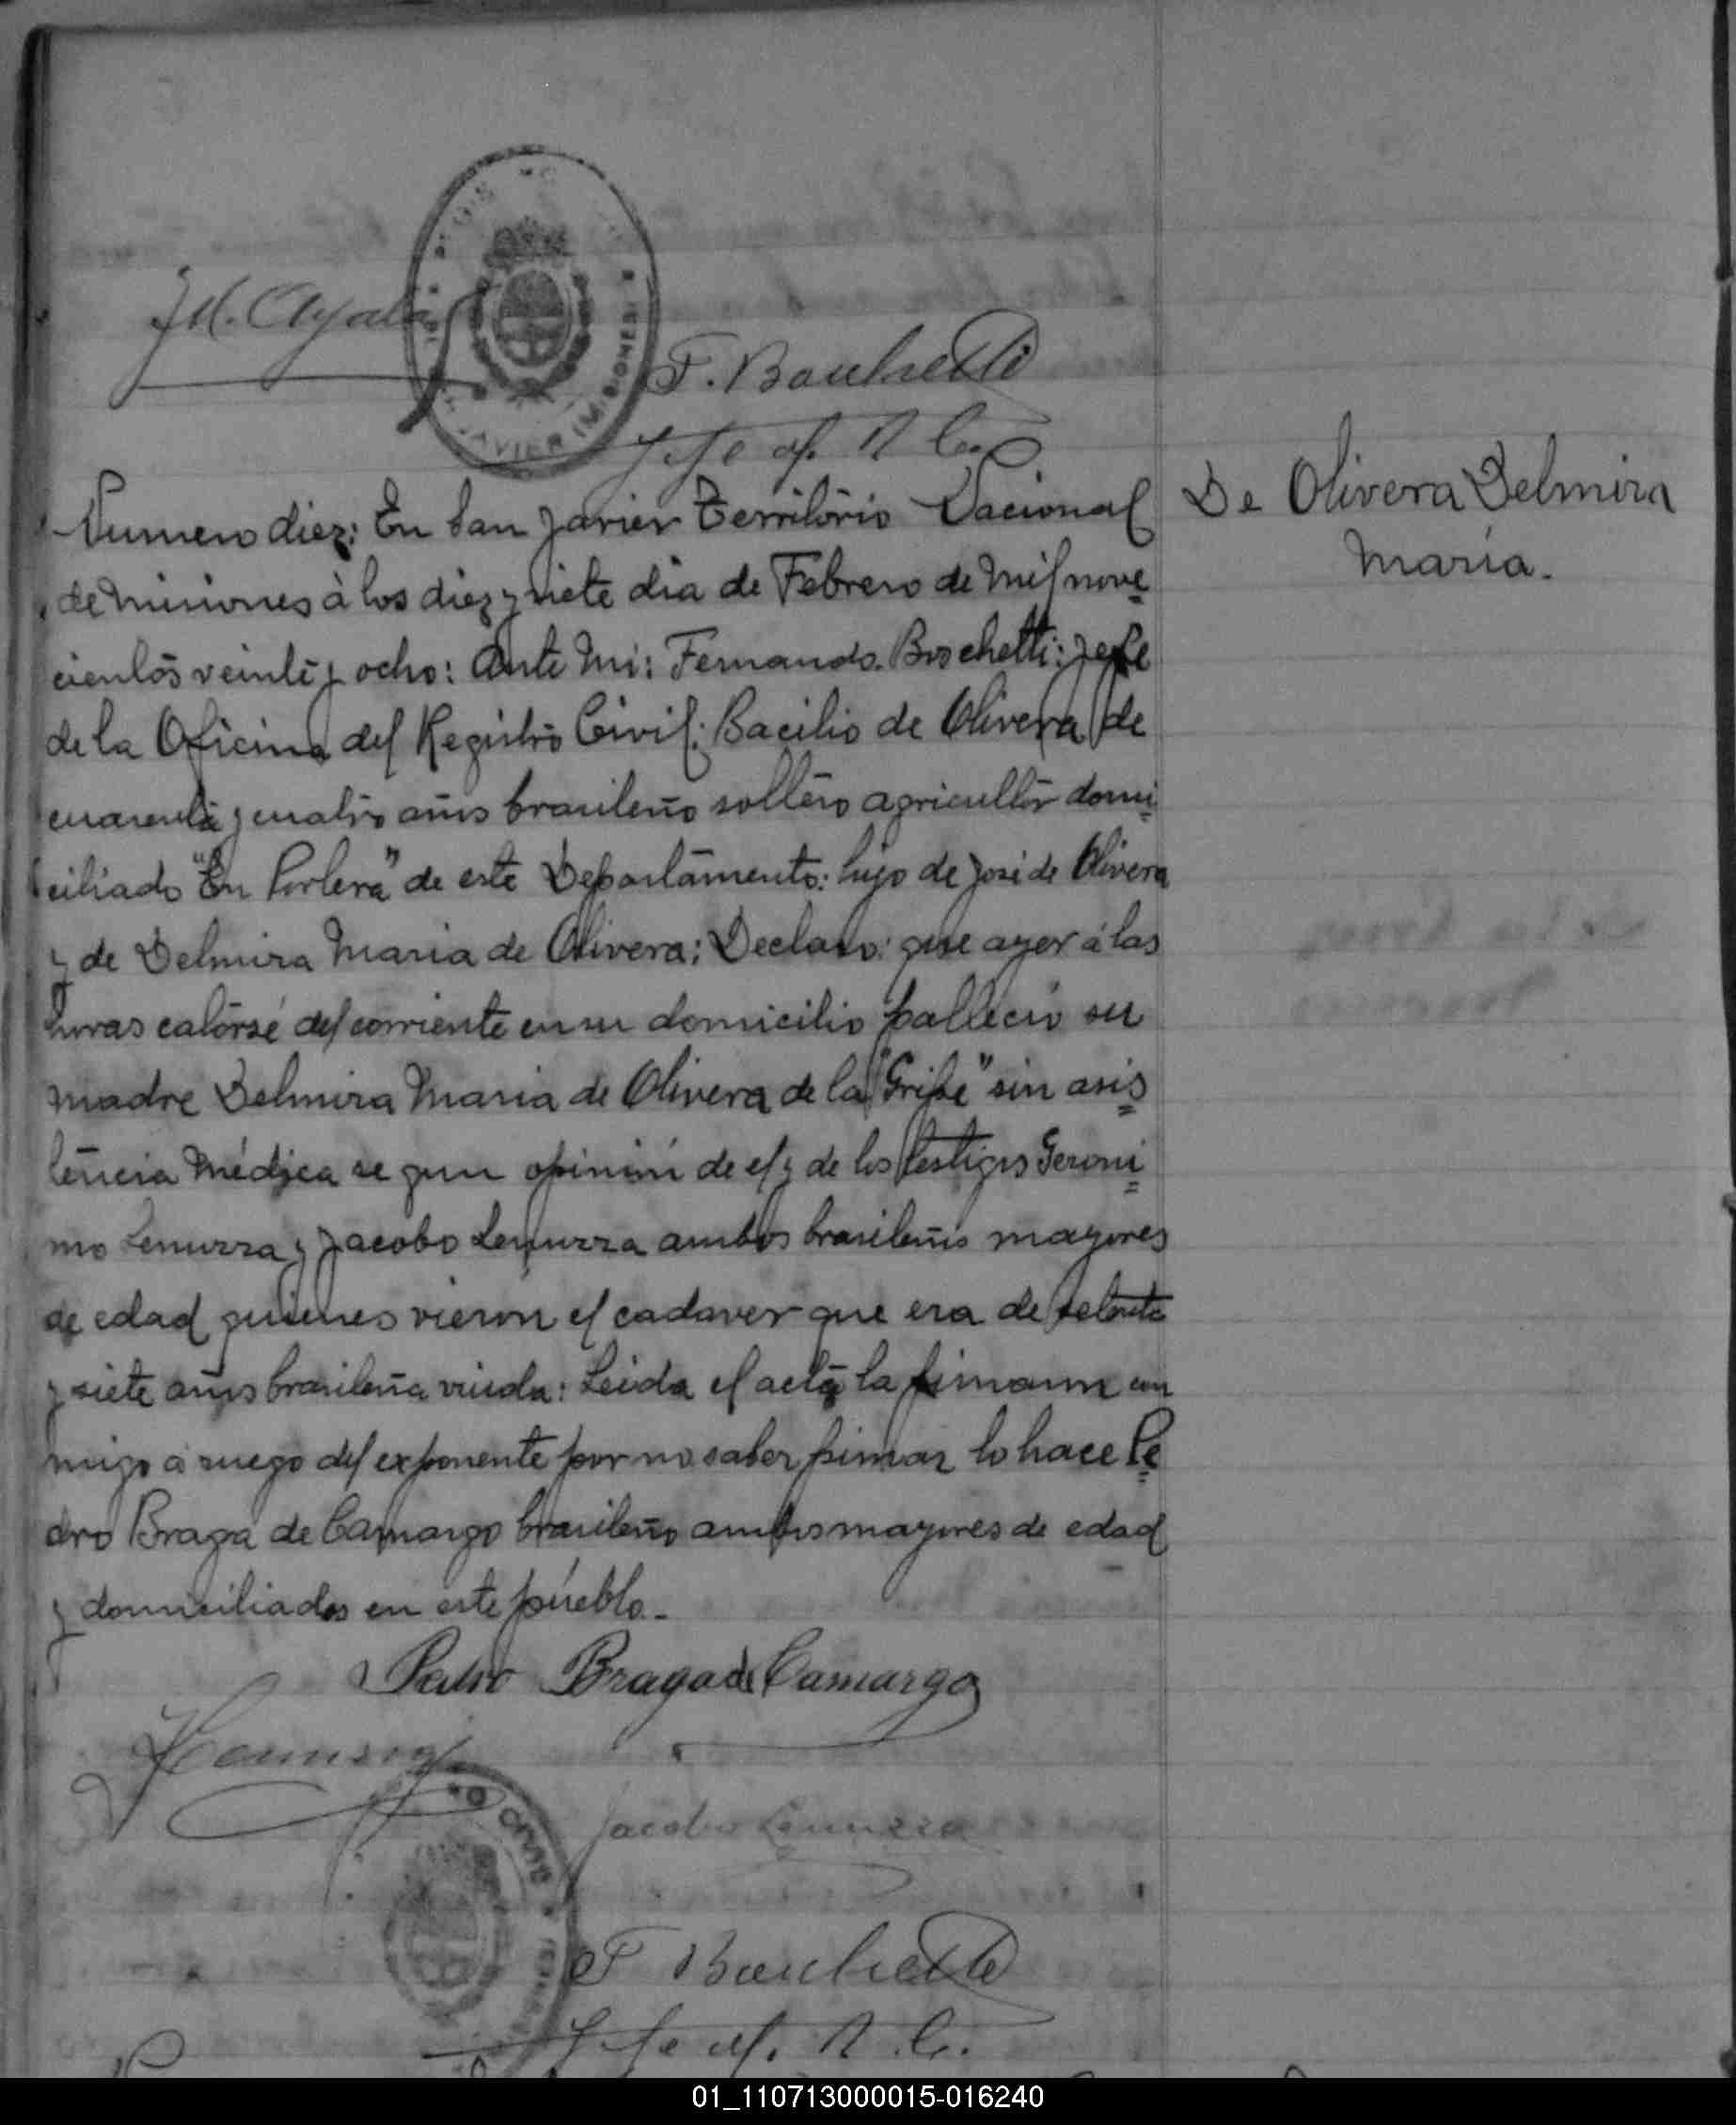 J M. Ayala
JAVIER (MISIONES)
F. Boschetti
Jefe del R C.
De Olivera Delmira
Maria.
Numero diez: En San Javier Territorio Nacional
de Misiones à los diez y siete dia de Febrero de Mil nove
cientos veinte y ocho: Ante Mi: Fernando Boschetti: Jefe
de la Oficina del Registro Civil: Bacilio de Olivera de
cuarenta y cuatro años brasileño soltero agricultor domi
ciliado "En Portera" de este Departamento: hijo de José de Olivera
y de Delmira Maria de Olivera: Declaro: que ayer á las
horas catorsé del corriente en su domicilio fallecio su
madre Delmira Maria de Olivera de la "Gripe" sin asis
tencia Médica se gun opinion de el y de los testigos Geroni
mo Lenurza y Jacobo Lenurza ambos brasileños mayores
de edad quienes vieron el cadaver que era de setenta
y siete años brasileña viuda: Leida el acta la firmann con
migo a ruego del exponente por no saber firmar lo hace Pe
dro Braga de Camargo brasileño ambos mayores de edad
y domiciliados en este pueblo.-
Pedro Braga de Camargo
Jacobo Lenurza
O CIVIL
F Boschetti
Jefe del. R. C.
01_110713000015-016240